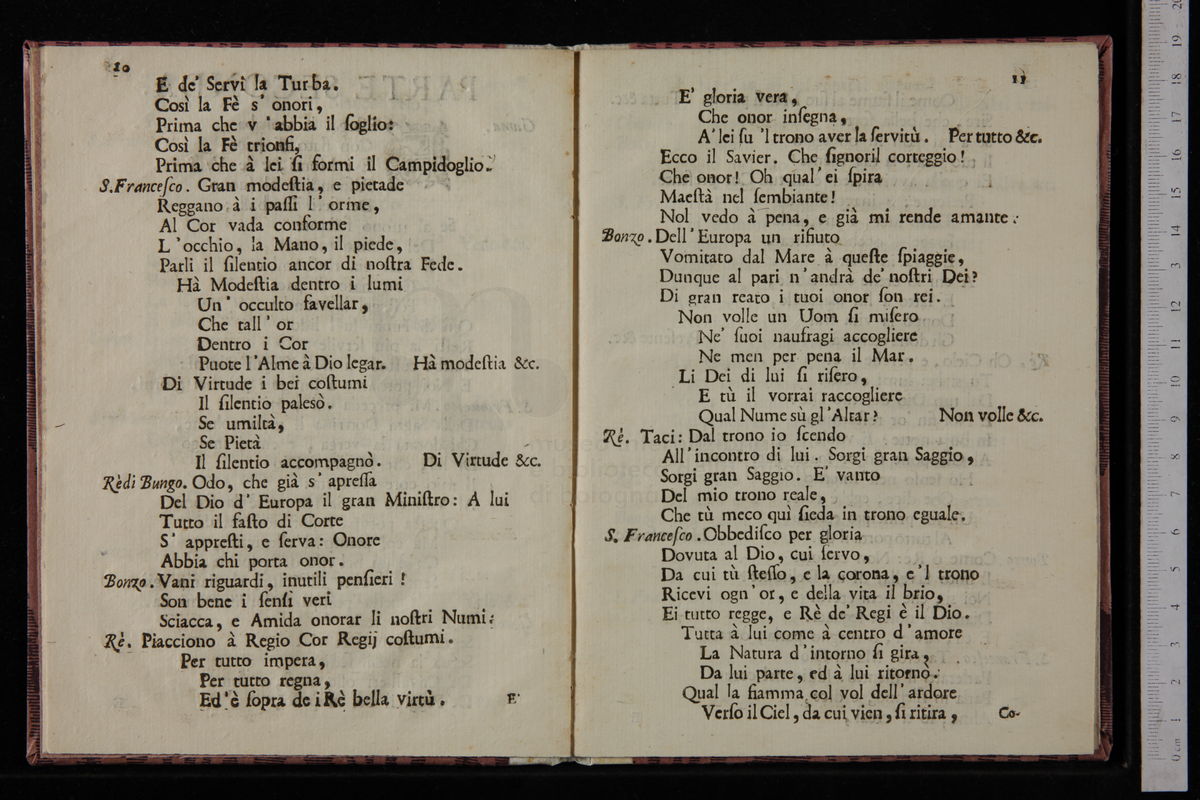 10
E de' Servi la Turba.
Così la Fè s' onori,
Prima che v 'abbia il ſoglio:
Così la Fè trionfi,
Prima che à lei ſi formi il Campidoglio.
S. Franceſco. Gran modeſtia, e pietade
Reggano à i paſſi l' orme,
Al Cor vada conforme
L 'occhio, la Mano, il piede,
Parli il ſilentio ancor di noſtra Fede.
Hà Modeſtia dentro i lumi
Un' occulto favellar,
Che tall' or
Dentro i Cor
Puote l'Alme à Dio legar. Hà modeſtia &c.
Di Virtude i bei coſtumi
Il ſilentio palesò.
Se umiltà,
Se Pietà
Il ſilentio accompagnò. Di Virtude &c.
Rè di Bungo. Odo, che già s' apreſſa
Del Dio d' Europa il gran Miniſtro: A lui
Tutto il faſto di Corte
S' appreſti, e ſerva: Onore
Abbia chi porta onor.
Bonzo. Vani riguardi, inutili penſieri!
Son bene i ſenſi veri
Sciacca, e Amida onorar li noſtri Numi.
Rè. Piacciono à Regio Cor Regij coſtumi.
Per tutto impera,
Per tutto regna,
Ed'è ſopra de i Rè bella virtù. E'
11
E' gloria vera,
Che onor inſegna,
A' lei ſu 'l trono aver la ſervitù. Per tutto &c.
Ecco il Savier. Che ſignoril corteggio!
Che onor! Oh qual' ei ſpira
Maeſtà nel ſembiante!
Nol vedo à pena, e già mi rende amante.
Bonzo. Dell' Europa un rifiuto
Vomitato dal Mare à queſte ſpiaggie,
Dunque al pari n' andrà de' noſtri Dei?
Di gran reato i tuoi onor ſon rei.
Non volle un Uom ſi miſero
Ne' ſuoi naufragi accogliere
Ne men per pena il Mar.
Li Dei di lui ſi riſero,
E tù il vorrai raccogliere
Qual Nume sù gl 'Altar? Non volle &c.
Rè. Taci: Dal trono io ſcendo
All' incontro di lui. Sorgi gran Saggio,
Sorgi gran Saggio. E' vanto
Del mio trono reale,
Che tù meco quì ſieda in trono eguale.
S. Franceſco. Obbediſco per gloria
Dovuta al Dio, cui ſervo,
Da cui tù ſteſſo, e la corona, e 'l trono
Ricevi ogn' or, e della vita il brio,
Ei tutto regge, e Rè de' Regi è il Dio.
Tutta à lui come à centro d' amore
La Natura d' intorno ſi gira,
Da lui parte, ed à lui ritornò.
Qual la fiamma col vol dell' ardore
Verſo il Ciel, da cui vien, ſi ritira, Co-